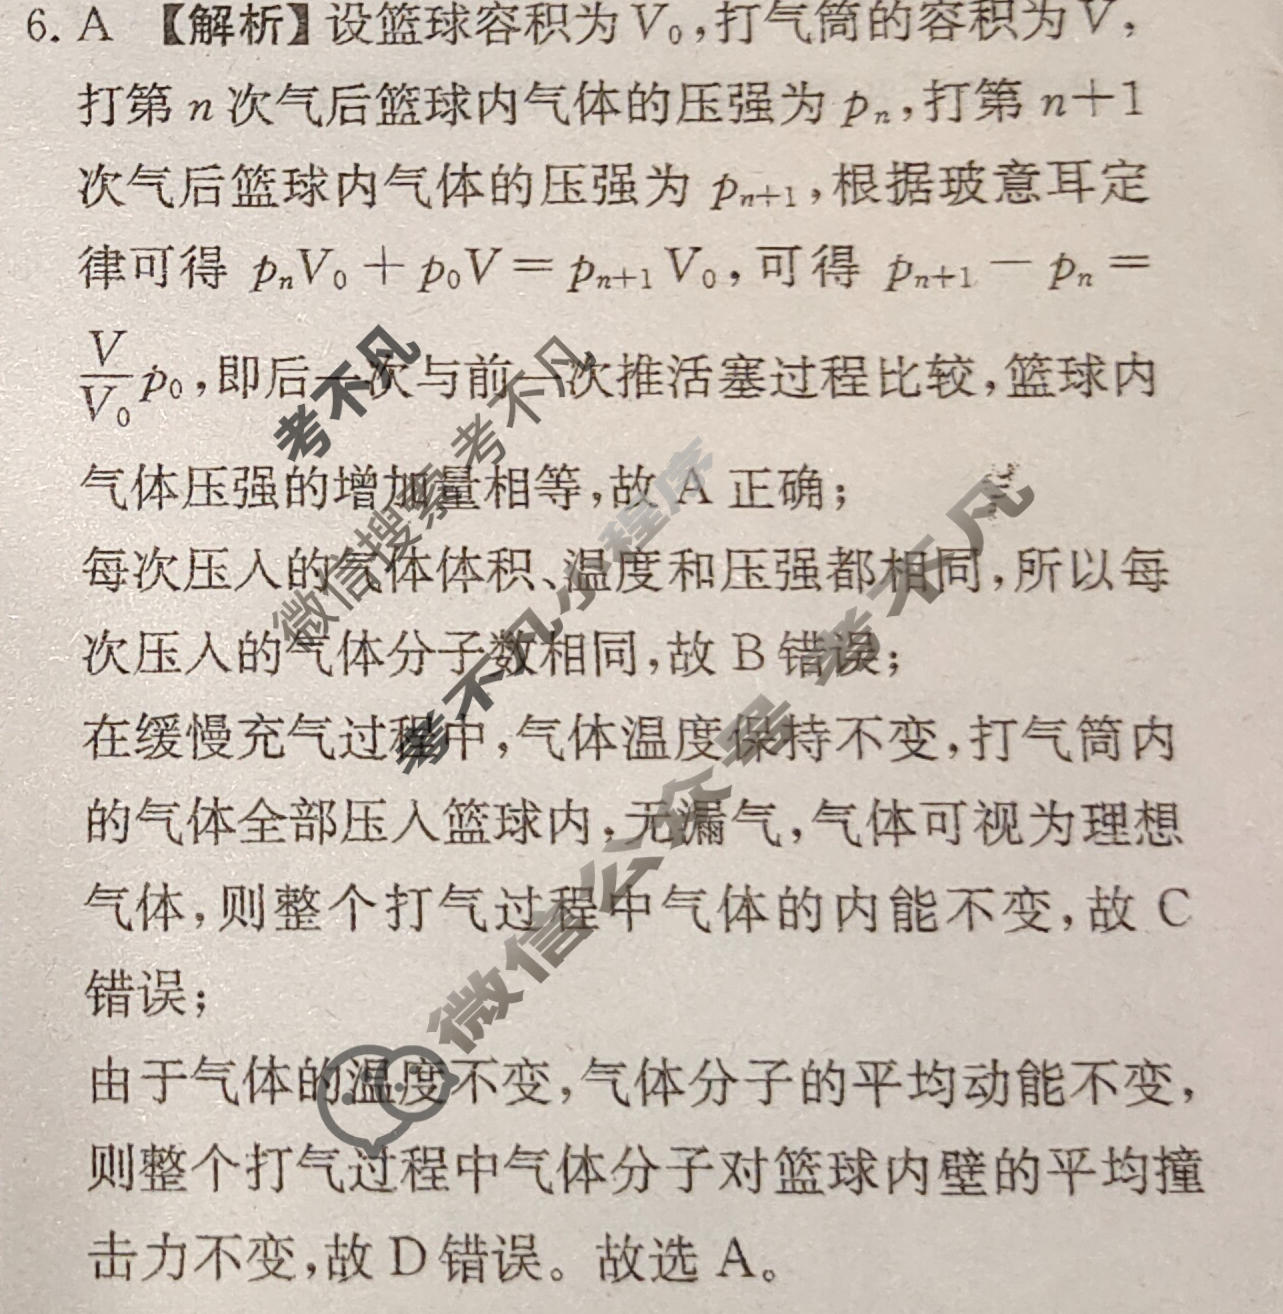 6. A 【解析】设篮球容积为V₀,打气筒的容积为V,
打第n次气后篮球内气体的压强为pₙ,打第n+1
次气后篮球内气体的压强为pₙ₊₁,根据玻意耳定
律可得 pₙV₀+p₀V=pₙ₊₁V₀,可得 pₙ₊₁-pₙ=
V/V₀ p₀,即后一次与前一次推活塞过程比较,篮球内
气体压强的增加量相等,故A正确;
每次压入的气体体积、温度和压强都相同,所以每
次压入的气体分子数相同,故B错误;
在缓慢充气过程中,气体温度保持不变,打气筒内
的气体全部压入篮球内,无漏气,气体可视为理想
气体,则整个打气过程中气体的内能不变,故C
错误;
由于气体的温度不变,气体分子的平均动能不变,
则整个打气过程中气体分子对篮球内壁的平均撞
击力不变,故D错误。故选A。
考不凡
微信搜索考不凡
考不凡小程序
微信公众号 考不凡